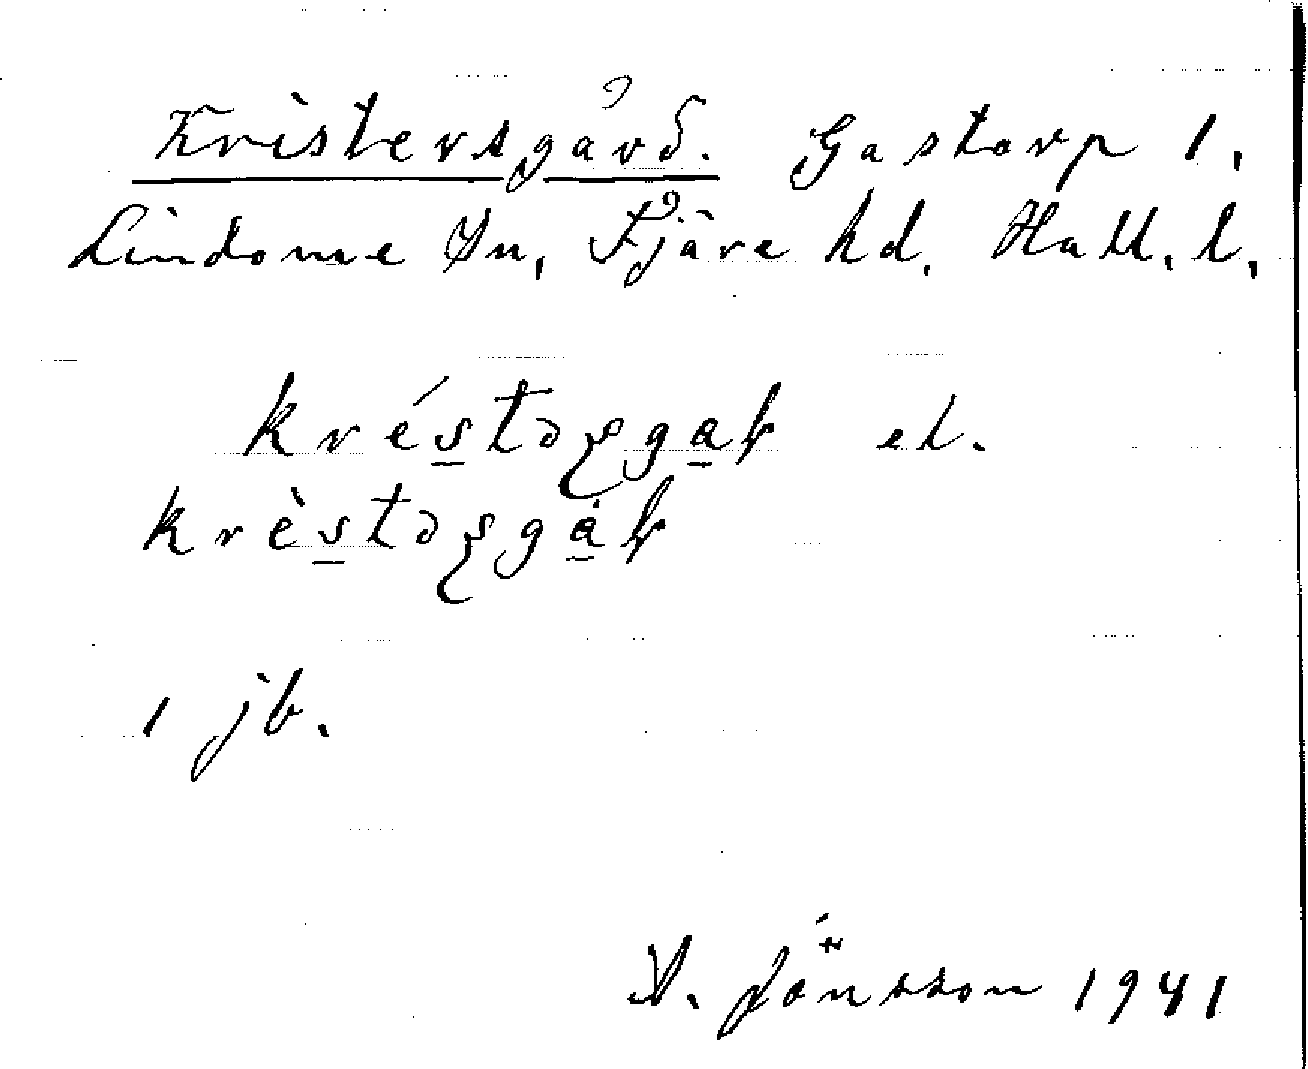 Kristersgård. Gastorp 1,
Lindome sn, Fjäre hd. Hall. l.
el.
1 jb.
A. Jönsson 1941